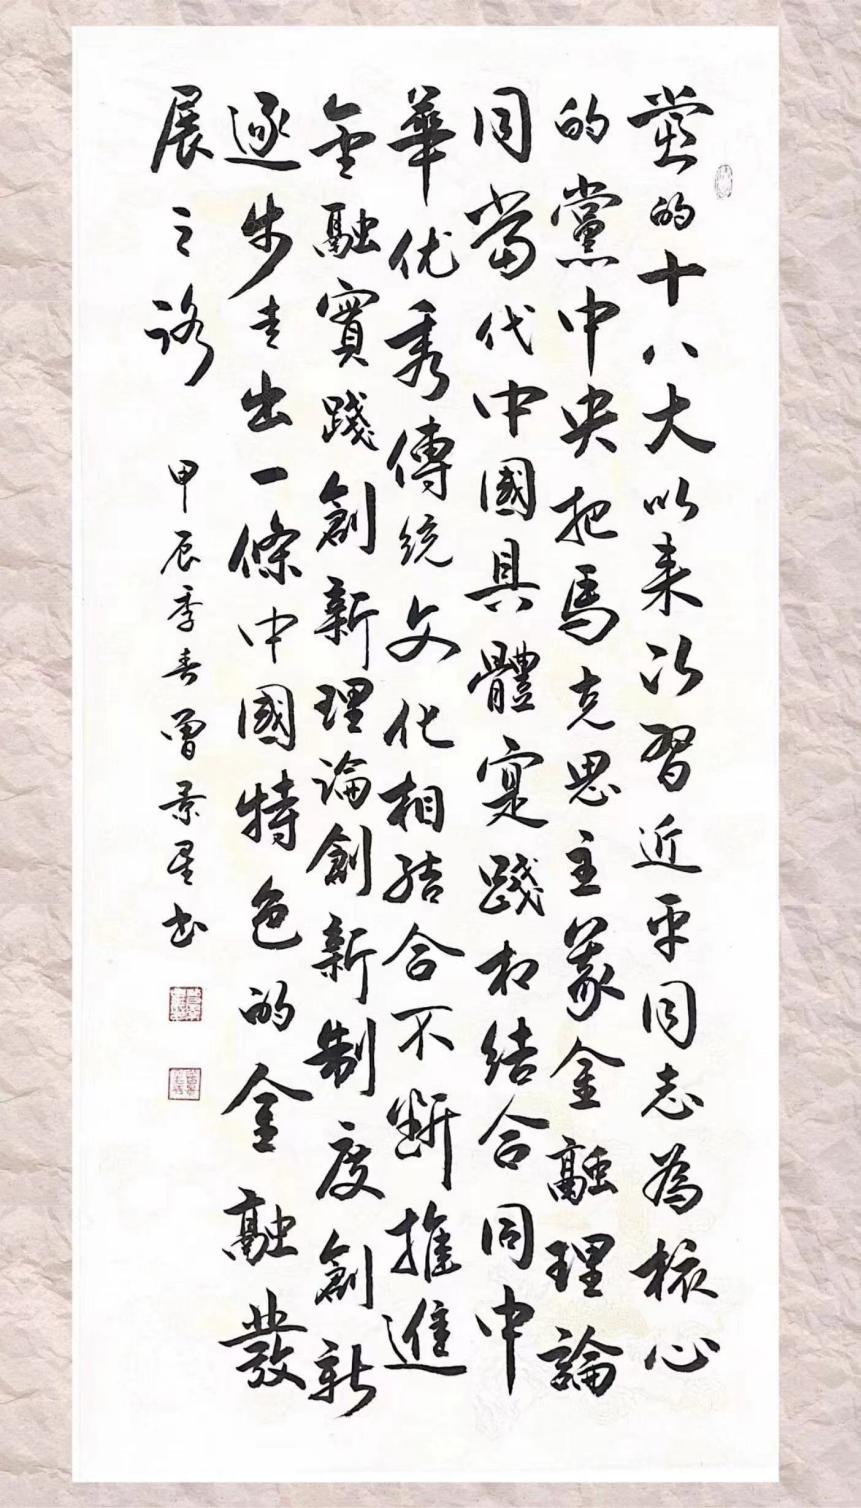 黨的十八大以来以習近平同志為核心
的黨中央把馬克思主义金融理論
同當代中國具體寔踐相结合同中
華优秀傳统文化相结合不断推進
金融實踐創新理論創新制度創新
逐步走出一條中國特色的金融發
展之路
甲辰季春曾景星书